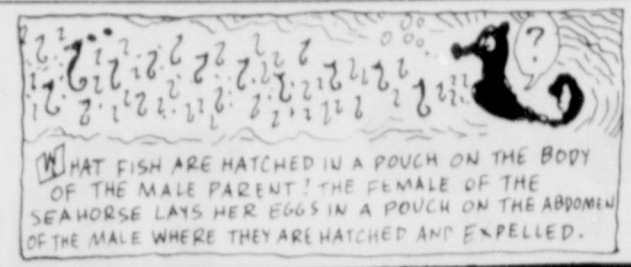 ?
WHAT FISH ARE HATCHED IN A POUCH ON THE BODY
OF THE MALE PARENT? THE FEMALE OF THE
SEAHORSE LAYS HER EGGS IN A POUCH ON THE ABDOMEN
OF THE MALE WHERE THEY ARE HATCHED AND EXPELLED.